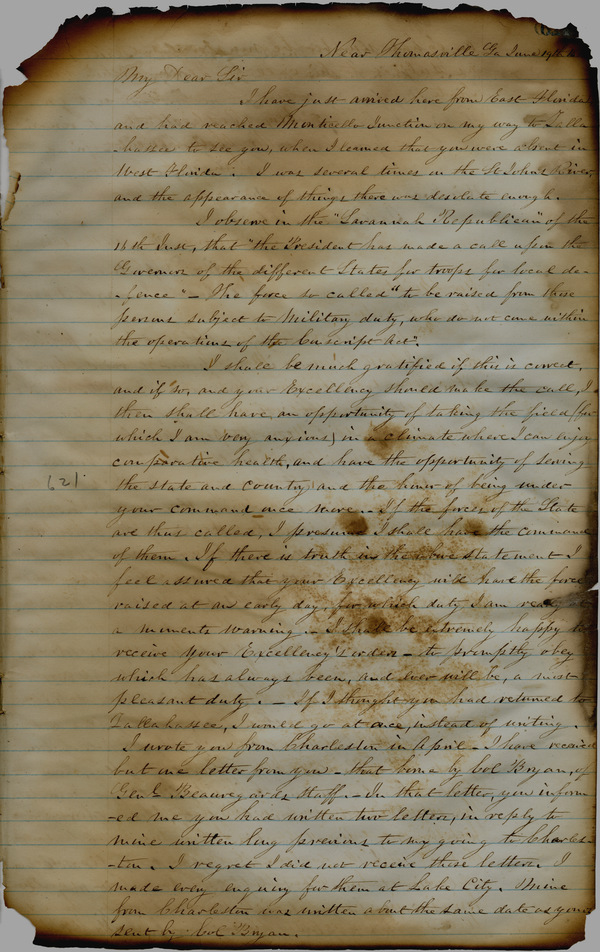 Near Thomasville Ga June 19th
My Dear Sir
I have just arrived here from East Florida
and had reached Monticello Junction on my way to Talla
hassee to see you, when I learned that you were absent in
West Florida. I was several times on the St Johns River,
and the appearance of things there was desolate enough.
I observe in the "Savannah Republican" of the
16th Inst, that "the President has made a call upon the
Governors of the different States for troops for local de-
-fence" - The force so called "to be raised from those
persons subject to Military duty, who do not come within
the operations of the Conscript Act".
I shall be much gratified if this is correct,
and if so, and your Excellency should make the call, I
then shall have an opportunity of taking the field (for
which I am very anxious) in a climate where I can enjoy
comparative health, and have the opportunity of serving
the state and country and the honor of being under
your command once more. - If the forces of the State
are thus called, I presume I shall have the command
of them. If there is truth in the above statement I
feel assured that your Excellency will have the force
raised at an early day, for which duty I am ready at
a moments warning. - I shall be extremely happy to
receive your Excellency's orders - to promptly obey
which has always been, and ever will be, a most
pleasant duty. - If I thought you had returned to
Tallahassee, I would go at once, instead of writing.
I wrote you from Charleston in April - I have received
but one letter from you - that borne by Col Bryan, of
Genl Beauregards staff. - In that letter, you inform-
-ed me you had written two letters, in reply to
mine written long previous to my going to Charles-
-ton. I regret I did not receive those letters. I
made every enquiry for them at Lake City. Mine
from Charleston was written about the same date as yours
sent by Col Bryan.
621